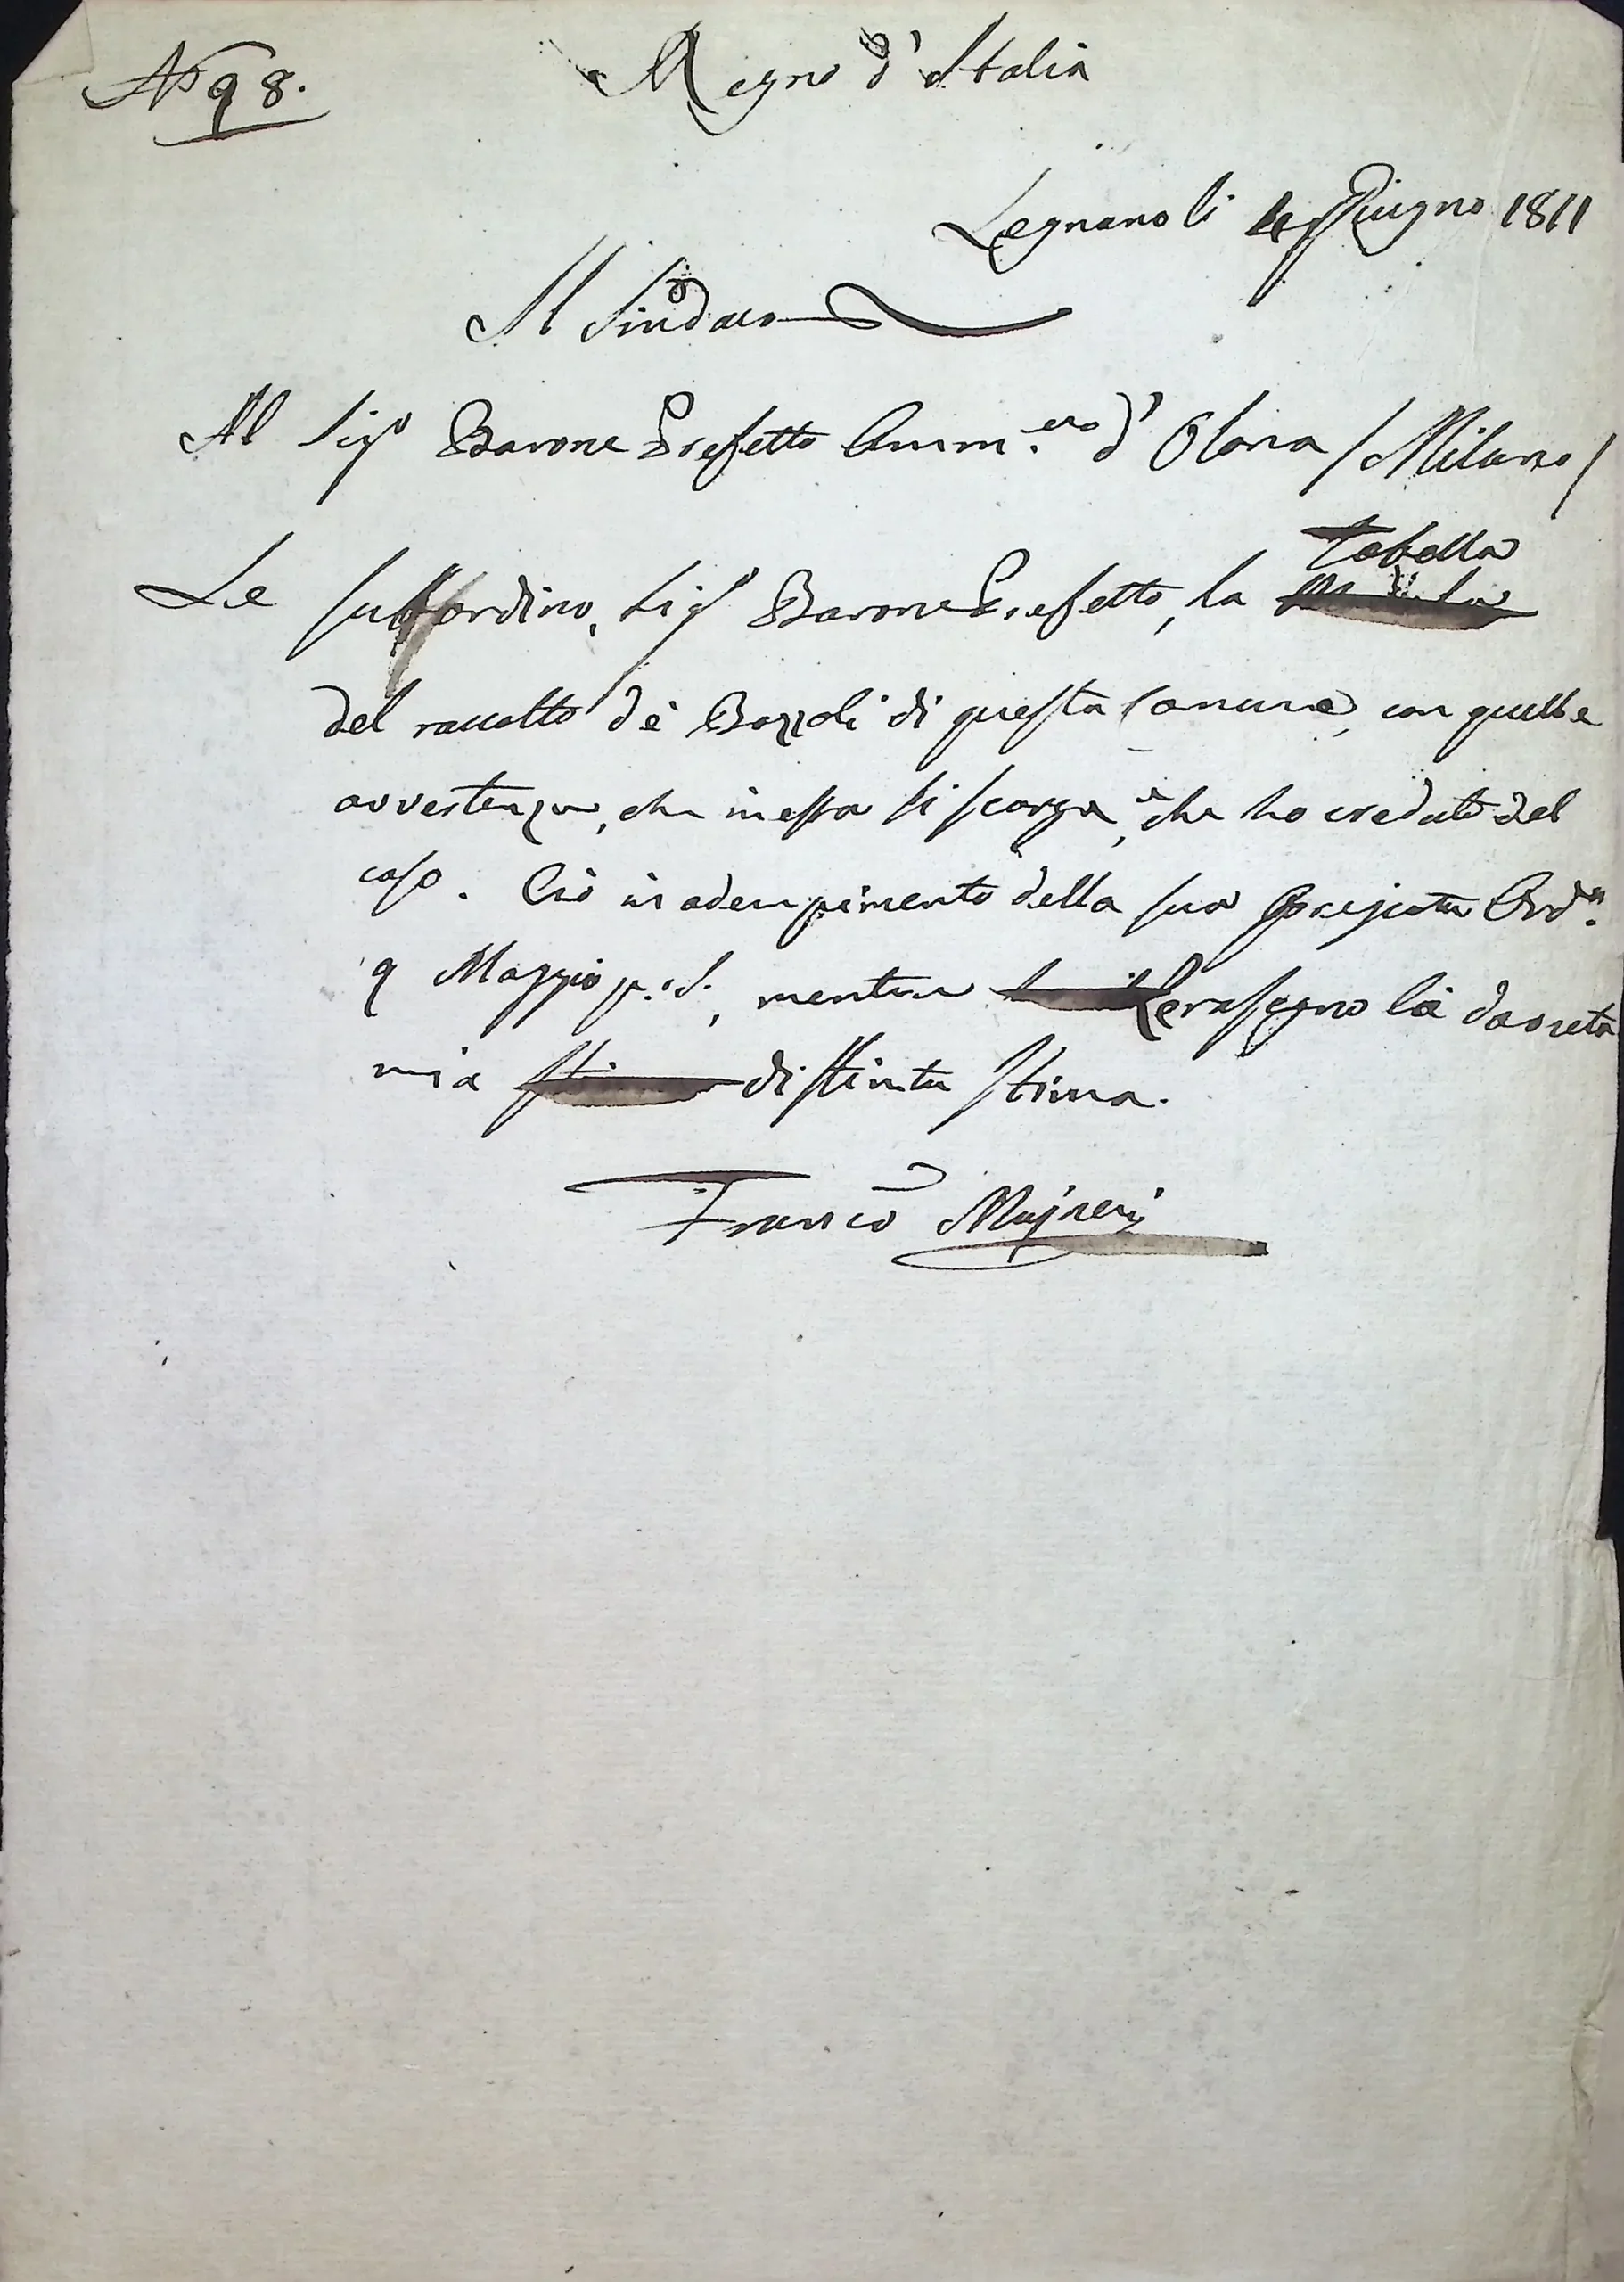 N° 98.
Regno d'Italia
Legnano li 4 Giugno 1811
Il Sindaco
Al Sigr Barone Prefetto Amm.ero d'Olona /Milano/
tabella
Le subbordino, Sigr Barone Prefetto, la
del raccolto d'è Bozzoli di questa Comune, con quelle
avvertenze, che in essa si scorge, e che ho creduto del
caso. Ciò in adempimento della sua Ord.a
9 Maggio p.°s.°, mentre Le rassegno la dovuta
mia distinta stima.
Franco